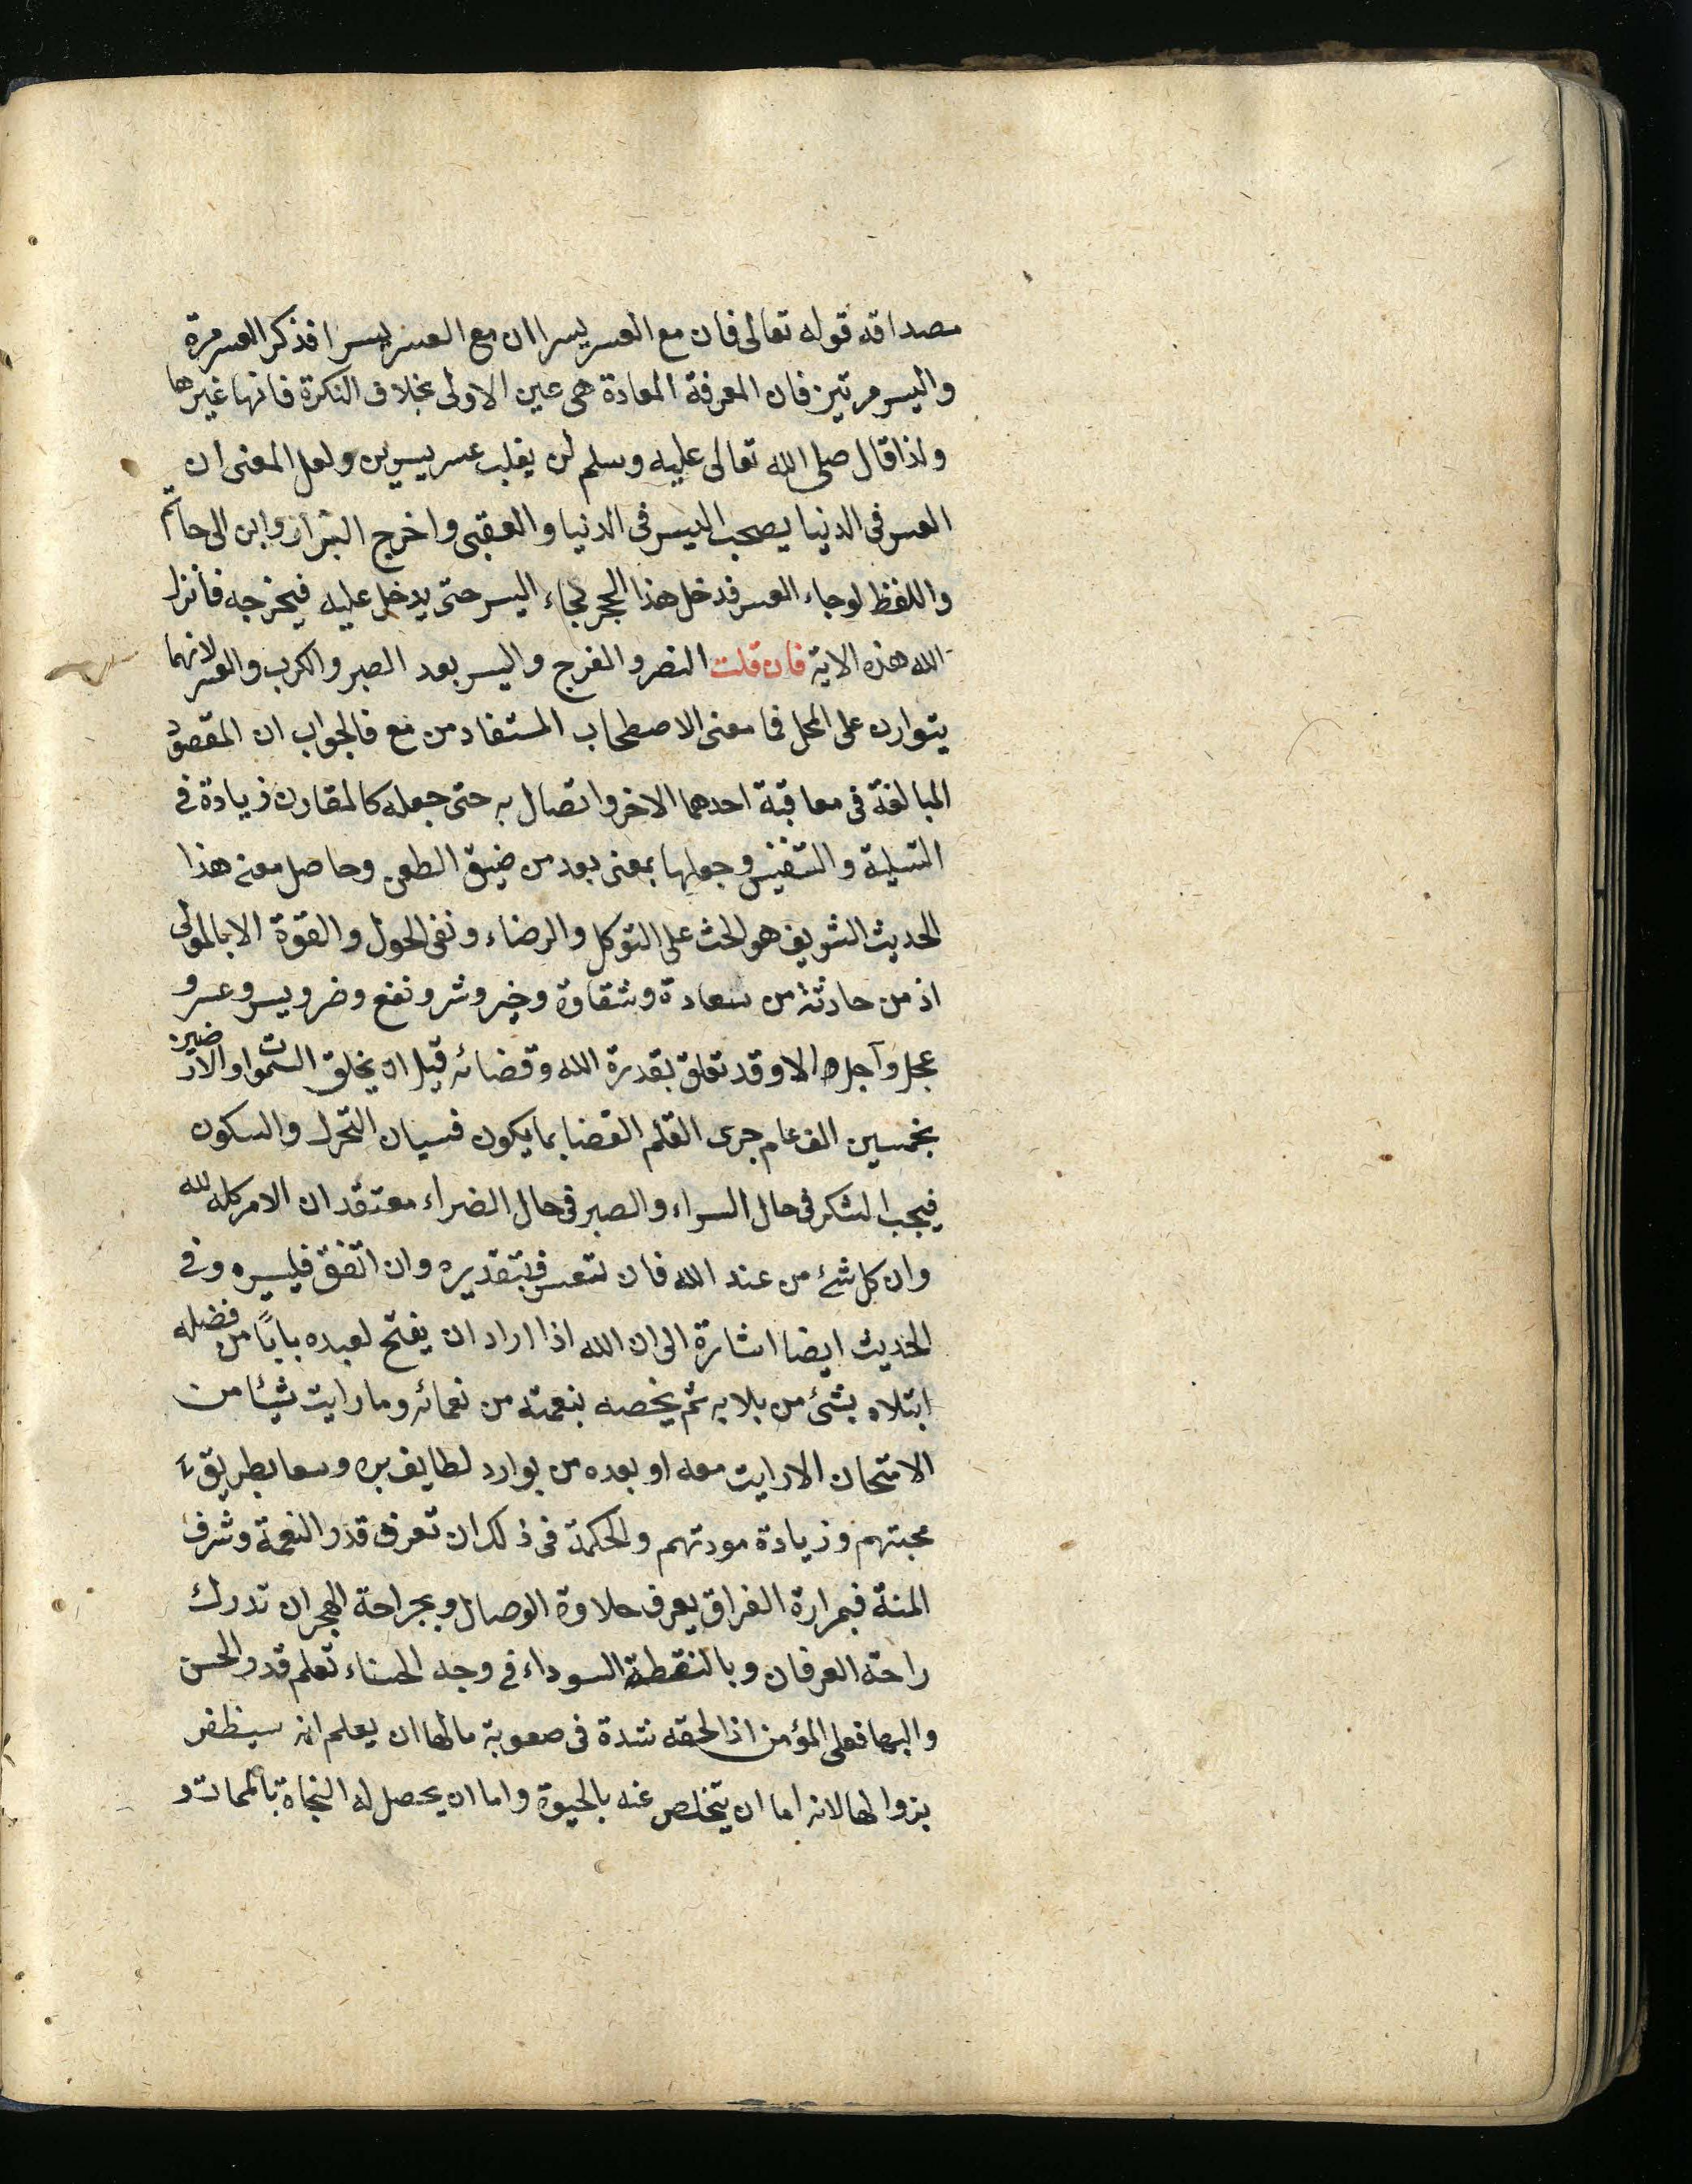 مصداقه قوله تعالى فان مع العسر يسرا ان مع العسر يسرا فذكر العسر مرة
واليسر مرتين فان المعرفة المعادة هى عين الاولى بخلاف النكرة فانها غيرها
ولذا قال صلى الله تعالى عليه وسلم لن يغلب عسر يسرين ولعل المعنى ان
العسر فى الدنيا يصحب اليسر فى الدنيا والعقبى واخرج البزار وابن ابى حاتم
واللفظ لو جاء العسر فدخل هذا الحجر لجاء اليسر حتى يدخل عليه فيخرجه فأنزل
الله هذه الاية فان قلت النصر والفرج واليسر بعد الصبر والكرب والعسر لانهما
يتوارد على المحل فما معنى الاصطحاب المستفاد من مع فالجواب ان المقصود
المبالغة فى معاقبة احدهما الاخر واتصال به حتى جعله كالمقارن زيادة فى
التسلية والتنفيس وجعلها بمعنى بعد من ضيق الطعن وحاصل معنى هذا
الحديث الشريف هو الحث على التوكل والرضاء ونفى الحول والقوة الا بالمولى
اذ من حادثة من سعادة وشقاوة وخير وشر ونفع وضر ويسر وعسر و
عجل وآجل الا وقد تعلق بقدرة الله وقضائه قبل ان يخلق السموات والارضين
بخمسين الف عام جرى القلم القضا بما يكون فسيان التحرك والسكون
فيجب الشكر فى حال السراء والصبر فى حال الضراء معتقد ان الامر كله لله
وان كل شئ من عند الله فان تعسر فبتقديره وان اتفق فليسره وفى
الحديث ايضا اشارة الى ان الله اذا اراد ان يفتح لعبده بابًا من فضله
ابتلاه بشئ من بلايه ثم يخصه بنعمته من نعمائه وما رايت شيئا من
الامتحان الا رايت معه او بعده من بوارد لطايف بره وسعا بطريق
محبتهم وزيادة مودتهم والحكمة فى ذلك ان تعرف قدر النعمة وشرف
المنة فبمرارة الفراق يعرف حلاوة الوصال وبجراحة الهجران تدرك
راحة العرفان وبالنقطة السوداء فى وجه الحسناء تعلم قدر الحسن
والبها فعلى المؤمن اذا لحقه شدة فى صعوبة مالها ان يعلم انه سيظفر
بزوالها لانه اما ان يتخلص عنه بالحيوة واما ان يحصل له النجاة بالممات و